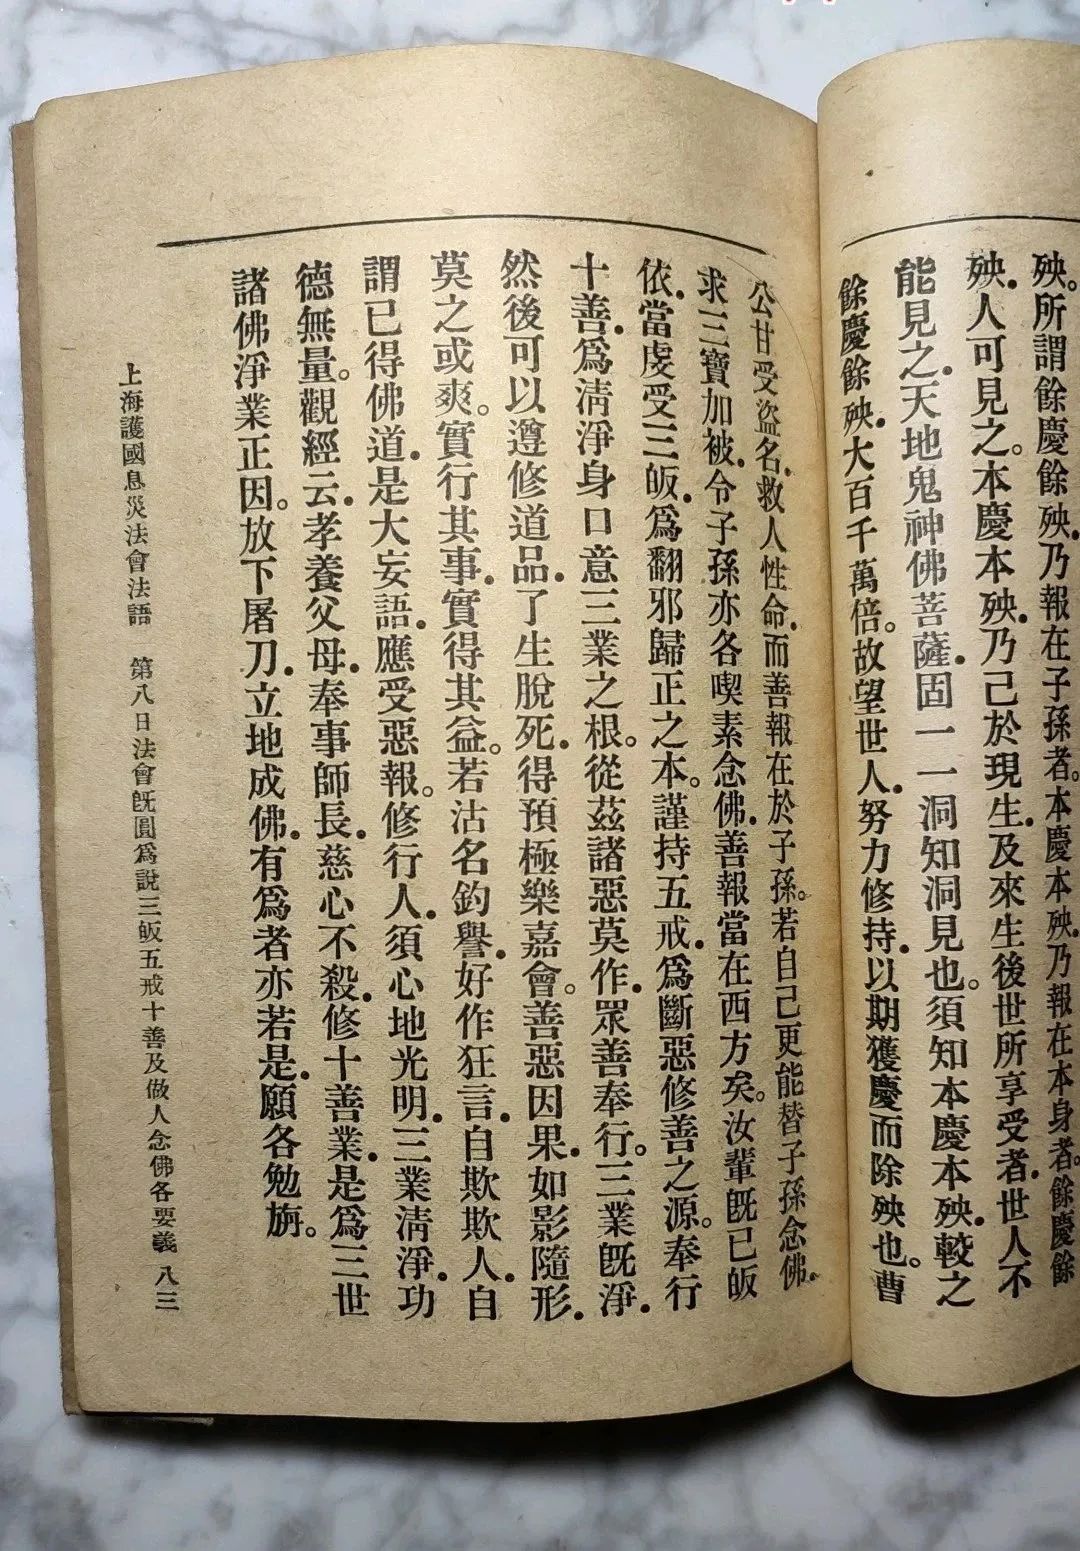 殃。所謂餘慶餘殃、乃報在子孫者。本慶本殃、乃報在本身者。餘慶餘
殃、人可見之。本慶本殃、乃己於現生、及來生後世所享受者、世人不
能見之、天地鬼神佛菩薩、固一一洞知洞見也。須知本慶本殃、較之
餘慶餘殃、大百千萬倍。故望世人、努力修持、以期獲慶而除殃也。曹
公甘受盜名、救人性命、而善報在於子孫。若自己更能替子孫念佛。
求三寶加被、令子孫亦各喫素念佛、善報當在西方矣。汝輩既已皈
依、當虔受三皈、爲翻邪歸正之本。謹持五戒、爲斷惡修善之源。奉行
十善、爲清淨身口意三業之根。從茲諸惡莫作、眾善奉行。三業既淨、
然後可以遵修道品、了生脫死、得預極樂嘉會。善惡因果、如影隨形、
莫之或爽。實行其事、實得其益。若沽名釣譽、好作狂言、自欺欺人、自
謂已得佛道、是大妄語、應受惡報。修行人、須心地光明、三業清淨、功
德無量。觀經云、孝養父母、奉事師長、慈心不殺、修十善業、是爲三世
諸佛淨業正因。放下屠刀、立地成佛、有爲者亦若是、願各勉旃。
上海護國息災法會法語　第八日法會既圓爲說三皈五戒十善及做人念佛各要義　八三